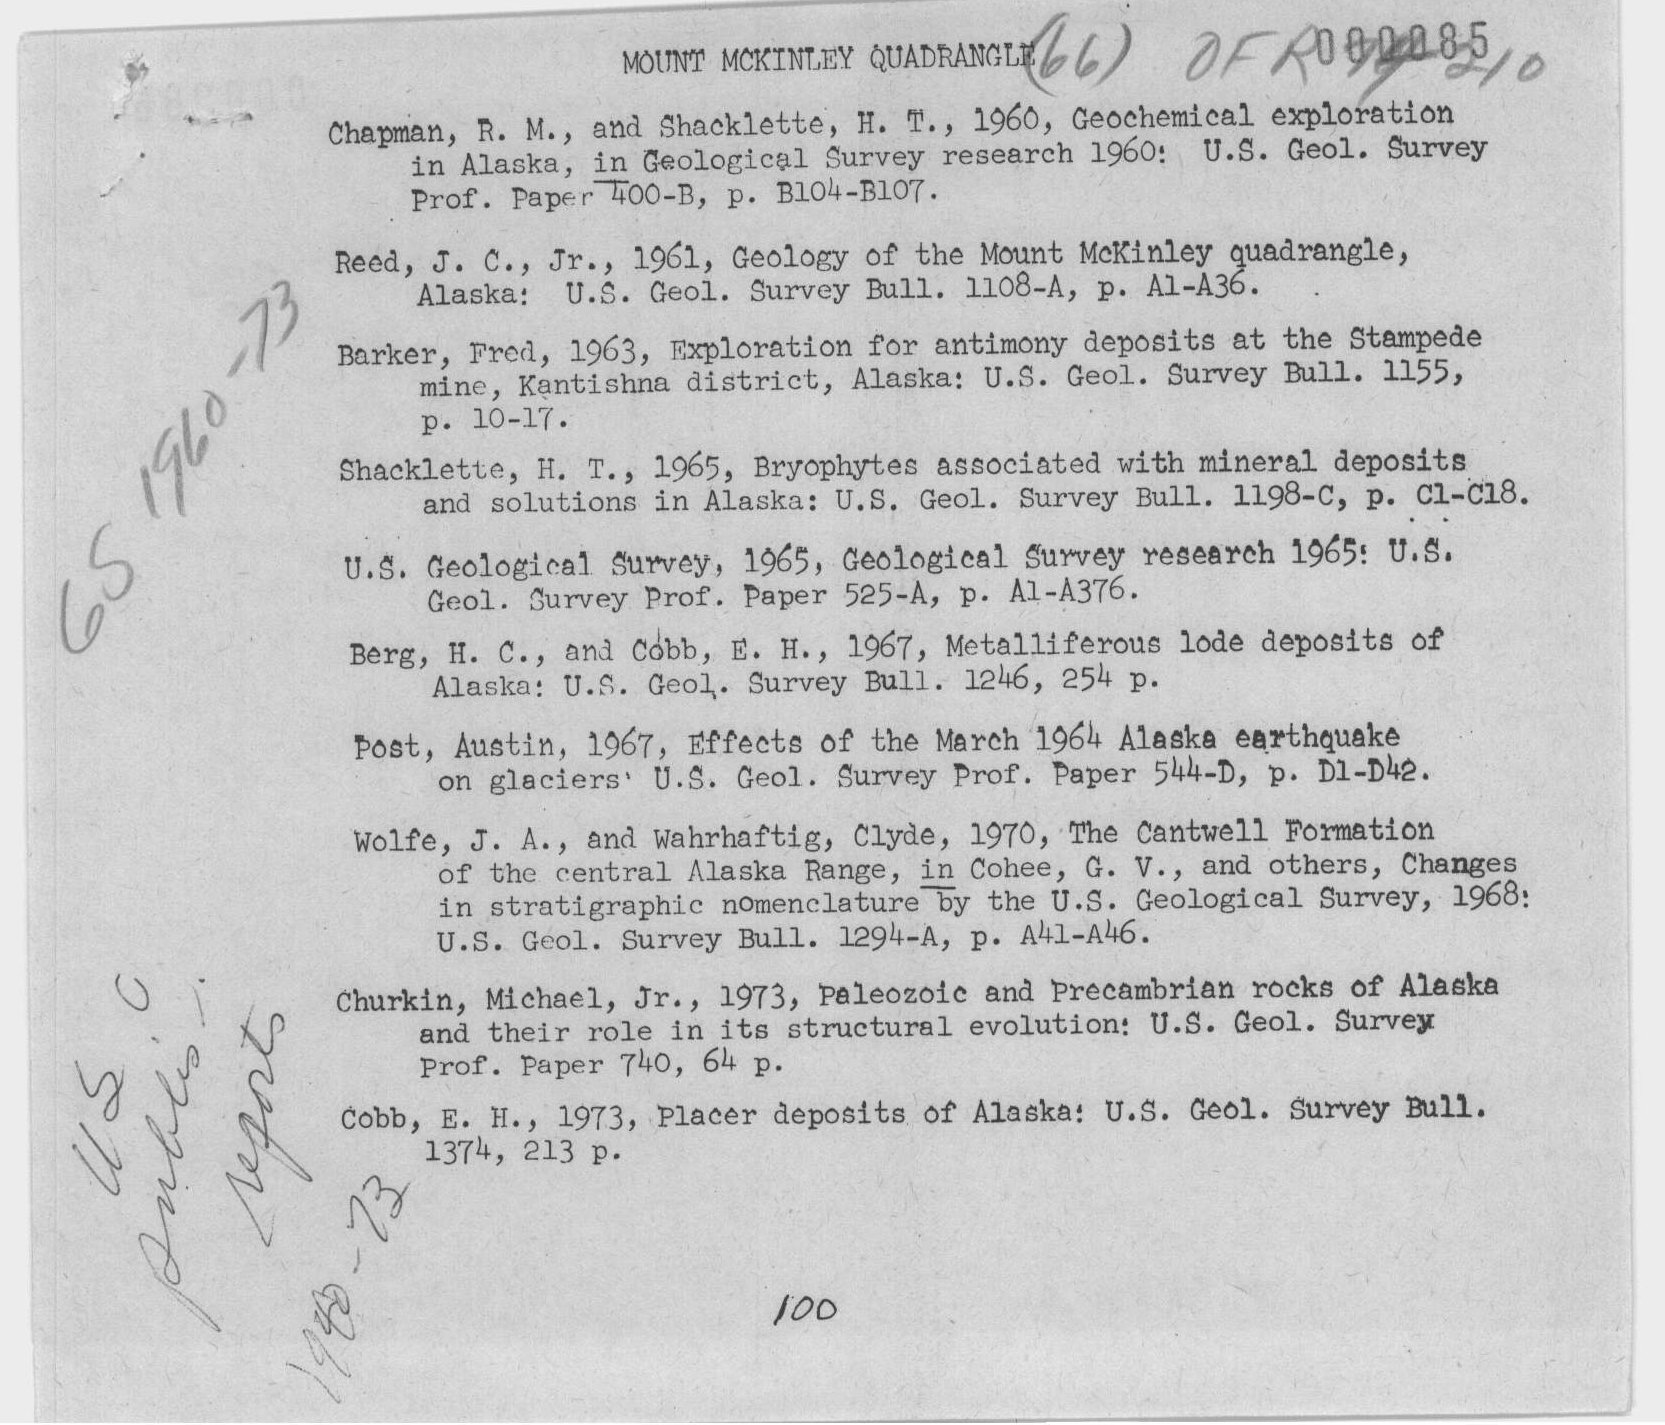 MOUNT MCKINLEY QUADRANGLE (66) OFR 210
000085
Chapman, R. M., and Shacklette, H. T., 1960, Geochemical exploration
in Alaska, in Geological Survey research 1960: U.S. Geol. Survey
Prof. Paper 400-B, p. B104-B107.
Reed, J. C., Jr., 1961, Geology of the Mount McKinley quadrangle,
Alaska: U.S. Geol. Survey Bull. 1108-A, p. A1-A36.
Barker, Fred, 1963, Exploration for antimony deposits at the Stampede
mine, Kantishna district, Alaska: U.S. Geol. Survey Bull. 1155,
p. 10-17.
Shacklette, H. T., 1965, Bryophytes associated with mineral deposits
and solutions in Alaska: U.S. Geol. Survey Bull. 1198-C, p. C1-C18.
U.S. Geological Survey, 1965, Geological Survey research 1965: U.S.
Geol. Survey Prof. Paper 525-A, p. A1-A376.
Berg, H. C., and Cobb, E. H., 1967, Metalliferous lode deposits of
Alaska: U.S. Geol. Survey Bull. 1246, 254 p.
Post, Austin, 1967, Effects of the March 1964 Alaska earthquake
on glaciers: U.S. Geol. Survey Prof. Paper 544-D, p. D1-D42.
Wolfe, J. A., and Wahrhaftig, Clyde, 1970, The Cantwell Formation
of the central Alaska Range, in Cohee, G. V., and others, Changes
in stratigraphic nomenclature by the U.S. Geological Survey, 1968:
U.S. Geol. Survey Bull. 1294-A, p. A41-A46.
Churkin, Michael, Jr., 1973, Paleozoic and Precambrian rocks of Alaska
and their role in its structural evolution: U.S. Geol. Survey
Prof. Paper 740, 64 p.
Cobb, E. H., 1973, Placer deposits of Alaska: U.S. Geol. Survey Bull.
1374, 213 p.
100
GS 1960-73
reports
-73